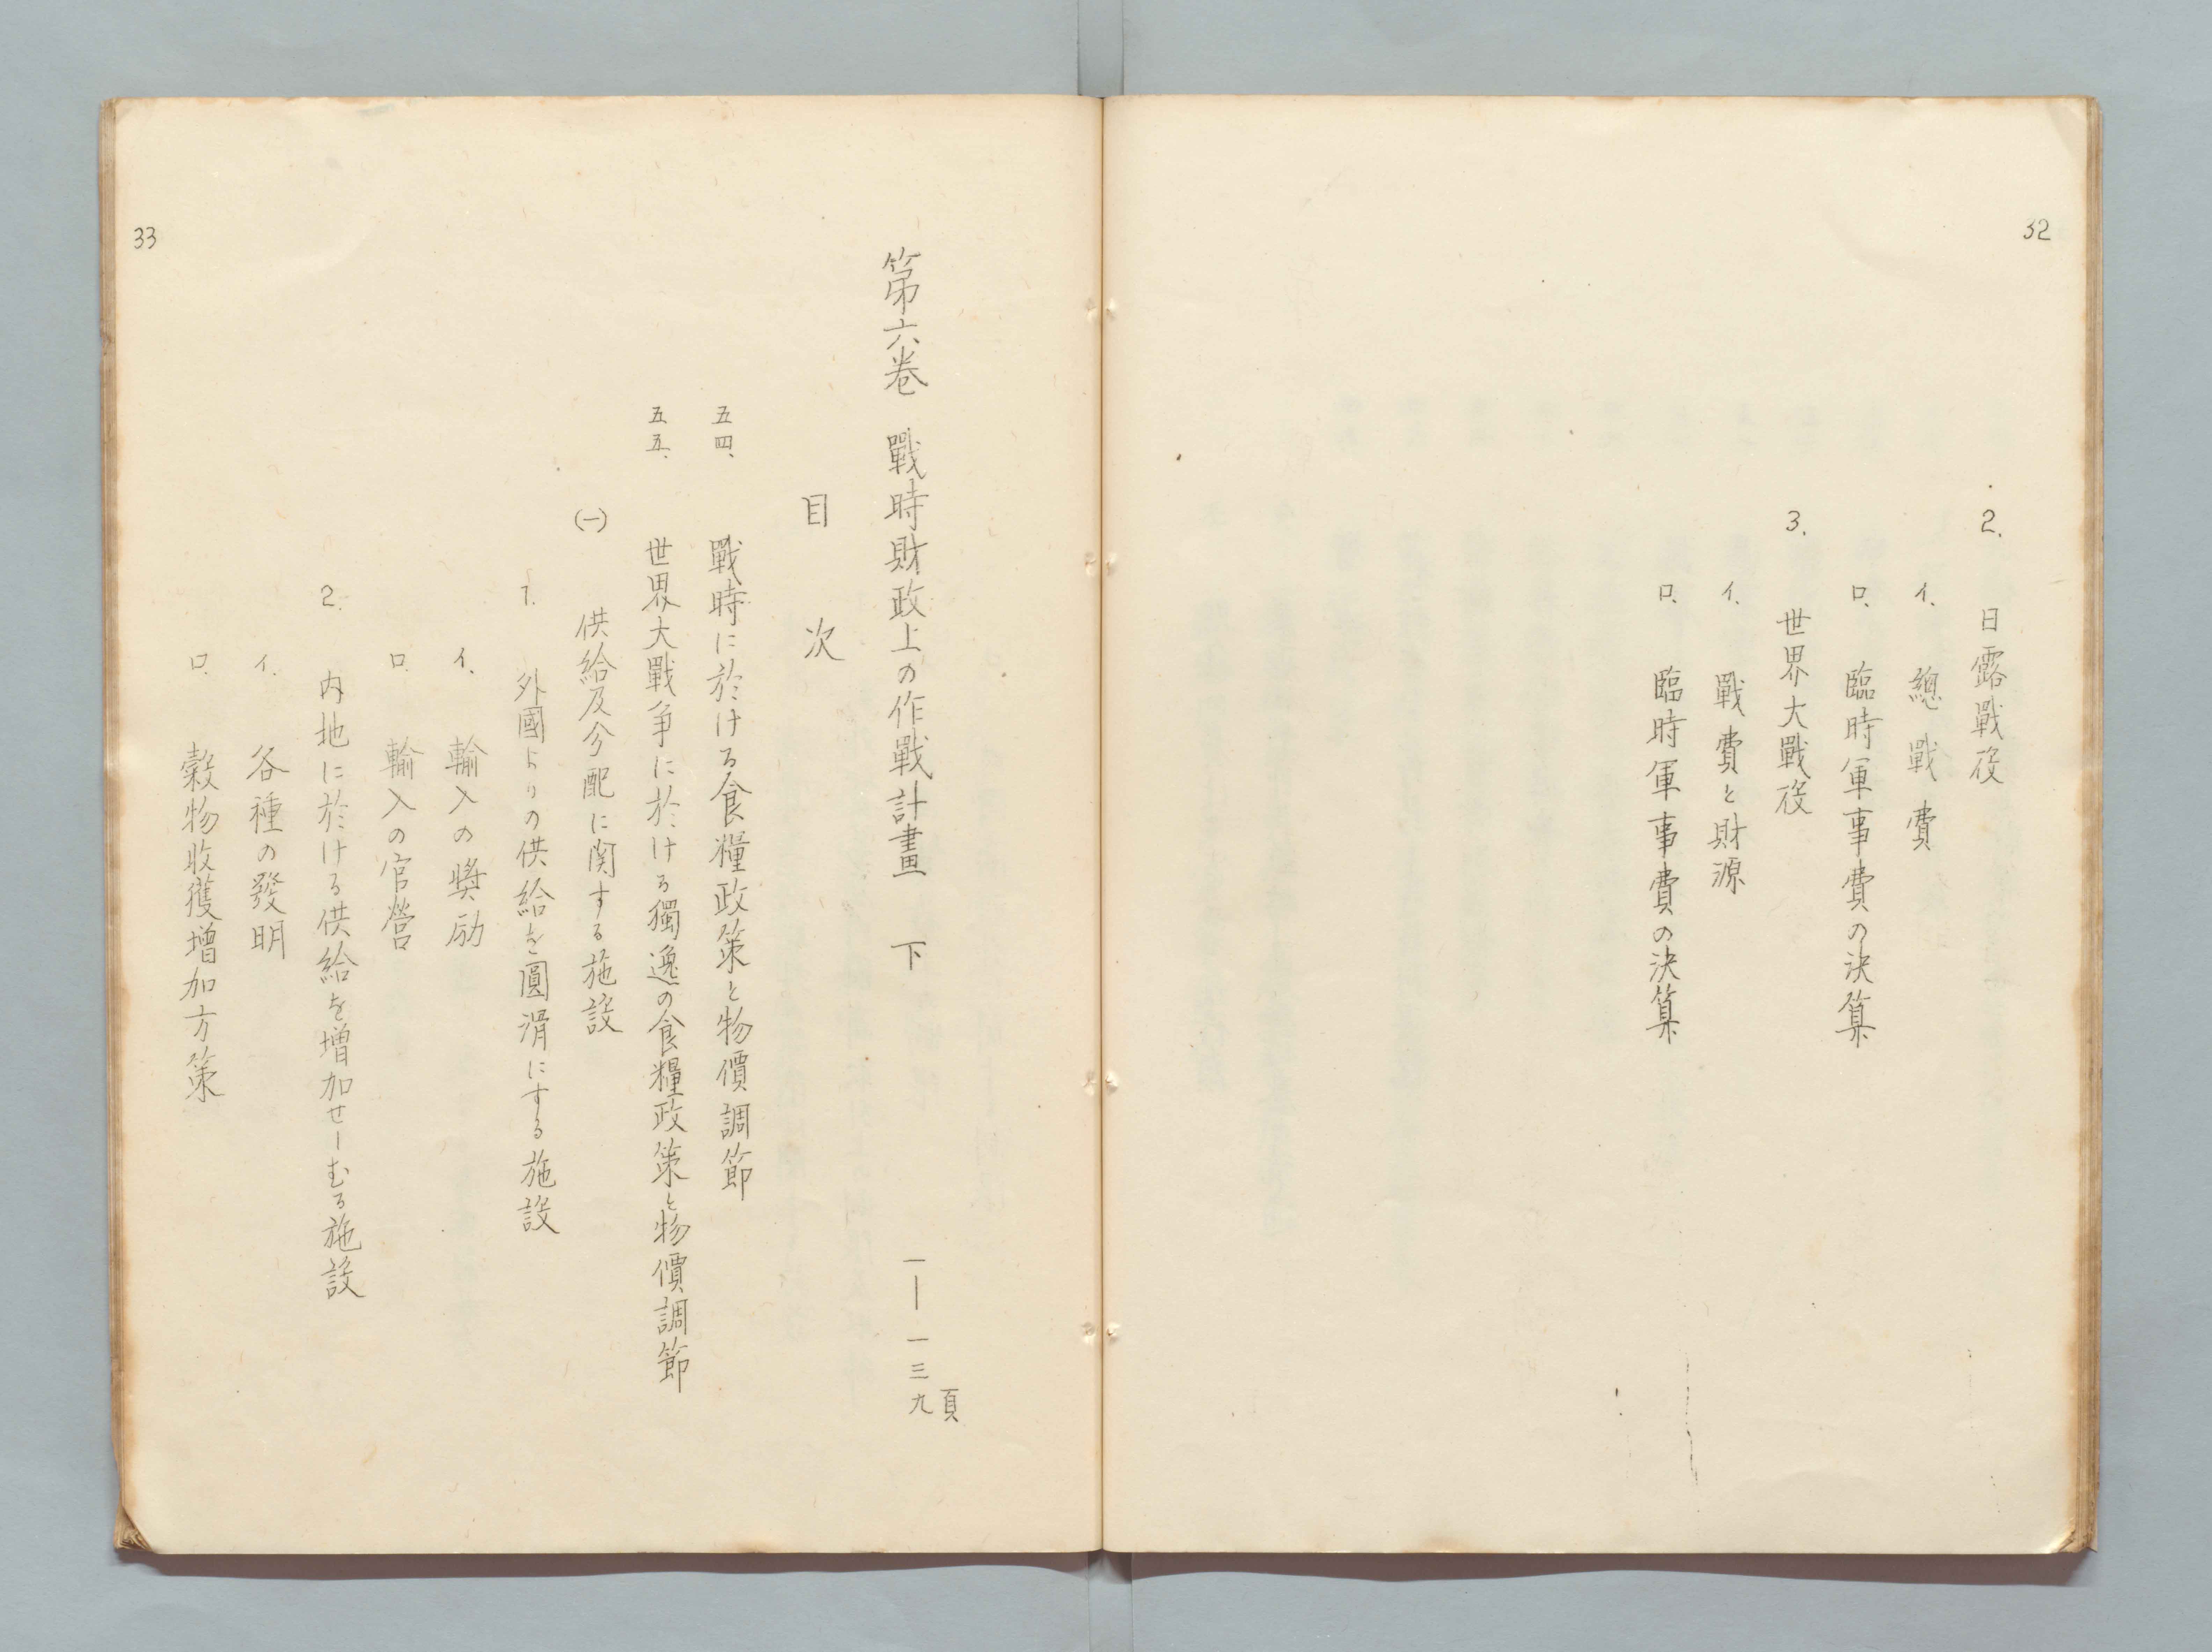 32
2. 日露戰役
イ、總戰費
ロ、臨時軍事費の決算
3. 世界大戰役
イ、戰費と財源
ロ、臨時軍事費の決算
第六卷 戰時財政上の作戰計畫 下 一—一三九頁
目次
五四、戰時に於ける食糧政策と物價調節
五五、世界大戰爭に於ける獨逸の食糧政策と物價調節
(一) 供給及分配に関する施設
1. 外國よりの供給を圓滑にする施設
イ、輸入の奬励
ロ、輸入の官營
2. 内地に於ける供給を増加せしむる施設
イ、各種の發明
ロ、穀物收獲増加方策
33